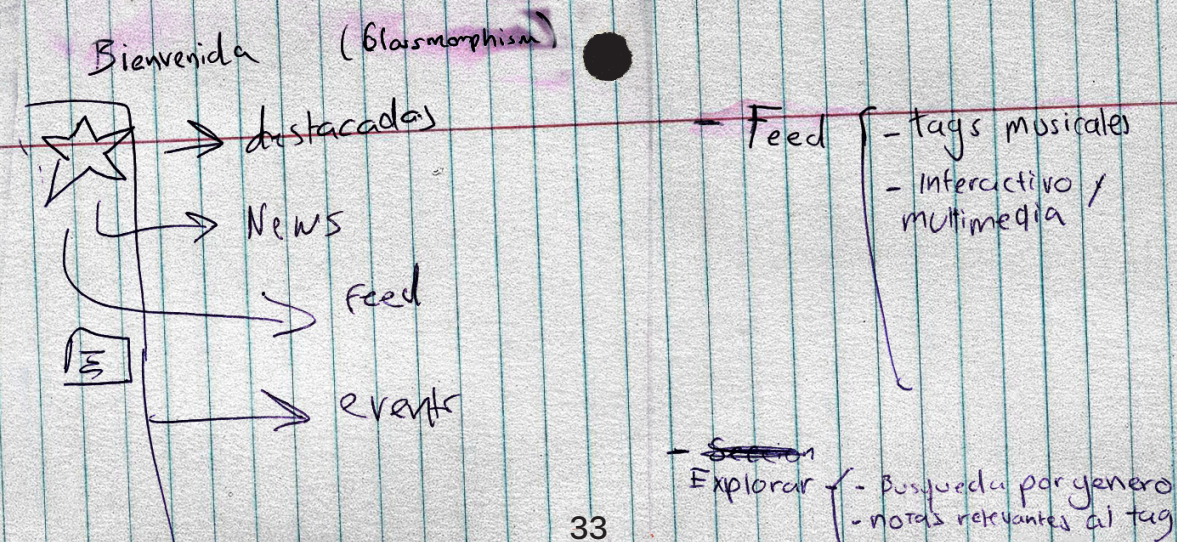 Bienvenida (Glassmorphism)
destacadas
News
Feed
events
- Feed
- tags musicales
- Interactivo /
multimedia
- Sección
Explorar - Busqueda por genero
- notas relevantes al tag
33